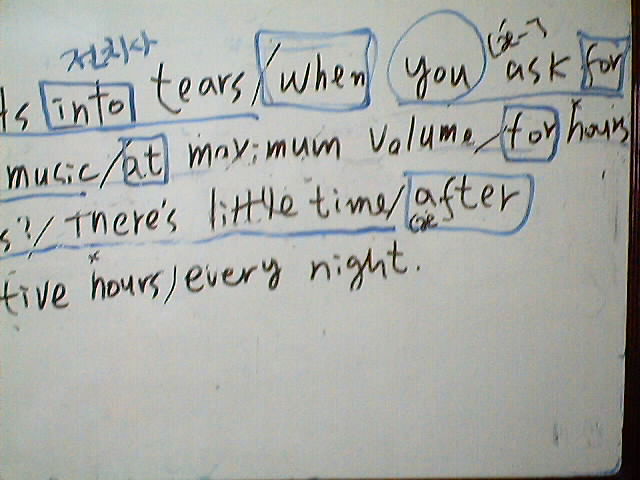 전치사
ts into tears/when you ask for
music/at maximum volume/for hours
s?/There's little time/after
five hours/every night.